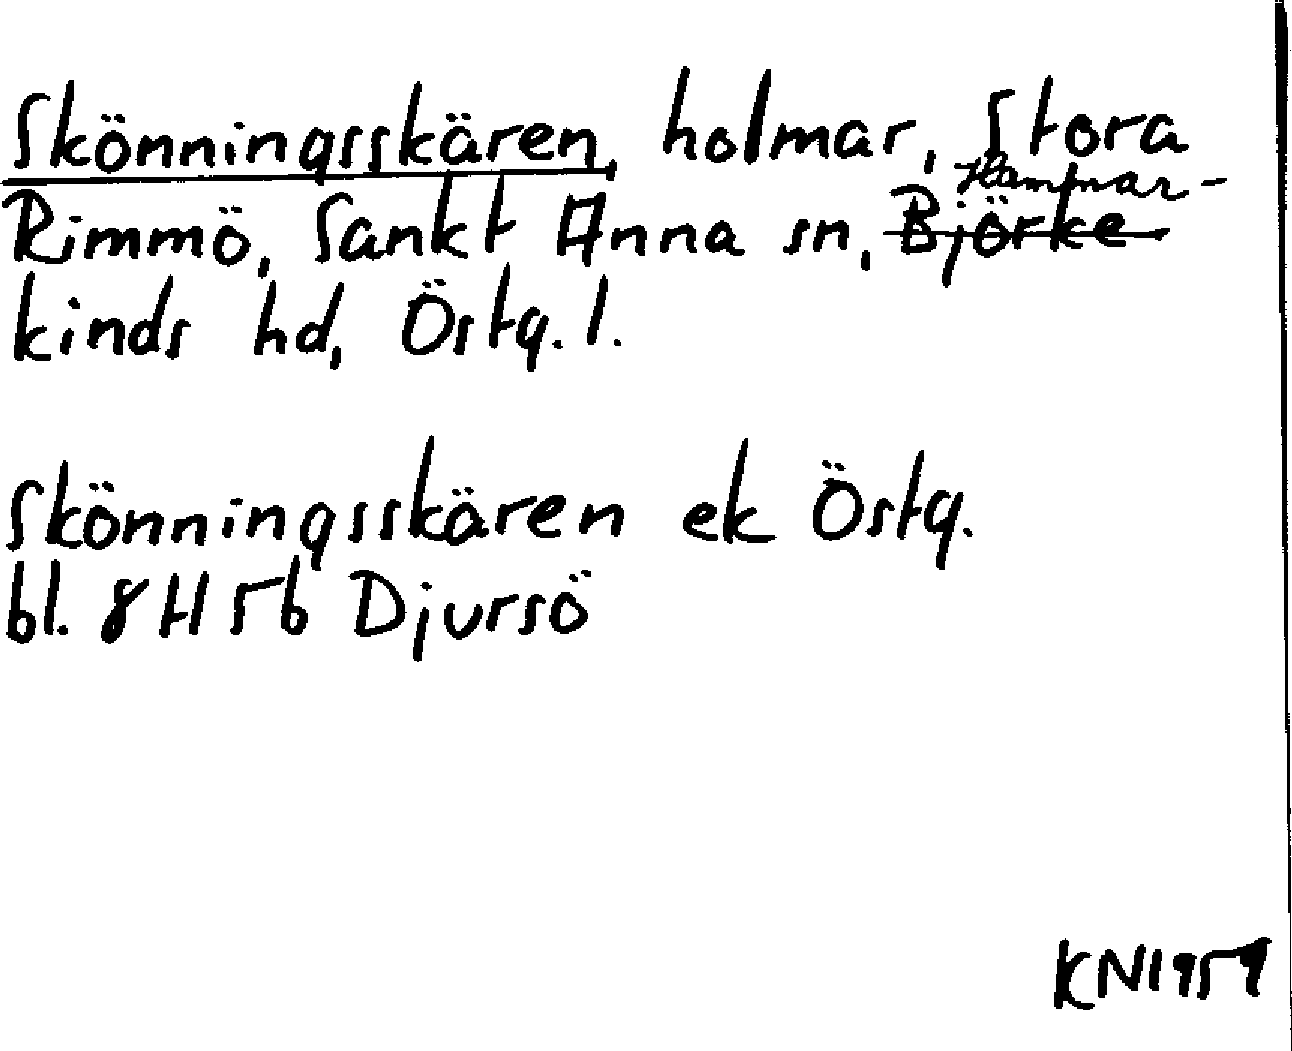 Skönningsskären, holmar, Stora
Hammar-
Rimmö, Sankt Anna sn, Björke
kinds hd, Östg. l.
Skönningsskären ek Östg.
bl. 8H 5b Djursö
KN1959